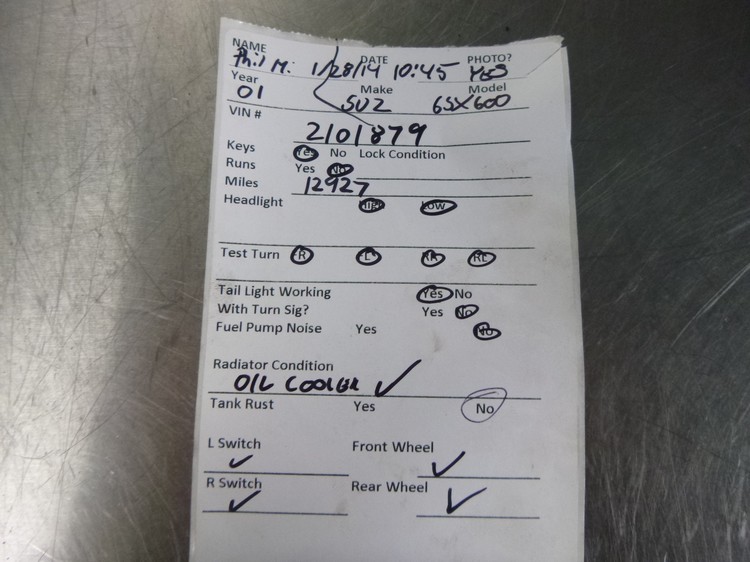 NAME DATE PHOTO?
Phil M. 1/28/14 10:45 YES
Year Make Model
01 SUZ GSX600
VIN #
2101879
Keys Yes No Lock Condition
Runs Yes No
Miles 12927
Headlight High Low
Test Turn FR FL RR RL
Tail Light Working Yes No
With Turn Sig? Yes No
Fuel Pump Noise Yes No
Radiator Condition
OIL COOLER ✓
Tank Rust Yes No
L Switch Front Wheel
✓ ✓
R Switch Rear Wheel
✓ ✓